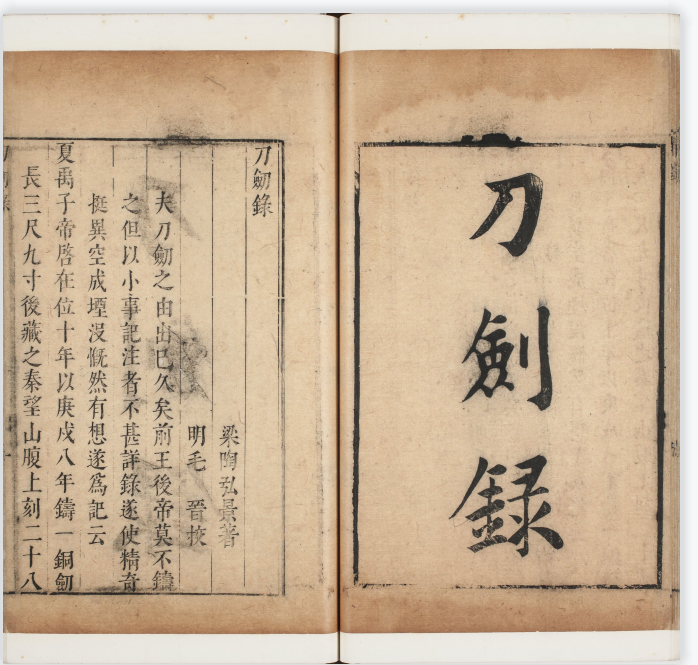 刀劍録
刀劒錄
梁陶弘景著
明毛 晉挍
夫刀劒之由出已久矣前王後帝莫不鑄
之但以小事記注者不甚詳錄遂使精奇
挺異空成堙沒慨然有想遂爲記云
夏禹子帝啓在位十年以庚戌八年鑄一銅劒
長三尺九寸後藏之秦望山腹上刻二十八